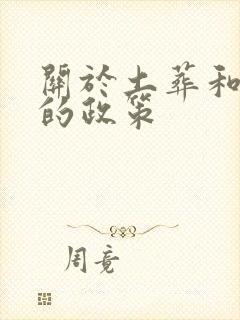 關於土葬和
的政策
周竟